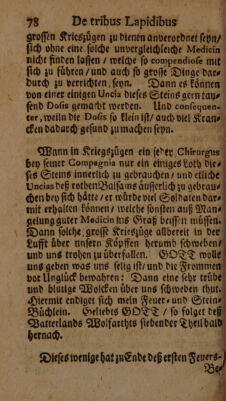 78 De tribus Lapidibus
grossen Kriegszügen zu dienen anverordnet seyn/
sich ohne eine solche unvergleichleiche Medicin
nicht finden lassen / welche so compendiose mit
sich zu führen / und auch so grosse Dinge dar-
durch zu verrichten / seyn. Dann es können
von einer einigen Uncia dieses Steins gern tau-
send Dosis gemacht werden. Und consequen-
ter, weiln die Dosis so klein ist / auch viel Kran-
cken dadurch gesund zu machen seyn.
Wann in Kriegszügen ein jeder Chirurgus
bey seiner Compagnia nur ein einiges Loth die-
ses Steins innerlich zu gebrauchen / und etliche
Uncias deß rothen Balsams äusserlich zu gebrau-
chen bey sich hätte / er würde viel Soldaten dar-
mit erhalten können / welche sonsten auß Man-
gelung guter Medicin ins Graß beissen müssen.
Dann solche grosse Kriegszüge allbereit in der
Lufft über unsern Köpffen herumb schweben /
und uns trohen zu überfallen. GOTT wolle
uns geben was uns selig ist / und die Frommen
vor Unglück bewahren: Dann eine sehr trübe
und blutige Wolcken über uns schweben thut.
Hiermit endiget sich mein Feuer- und Stein-
Büchlein. Geliebts GOTT / so folget deß
Vatterlands Wolfarthts siebender Theil bald
hernach.
Dieses wenige hat zu Ende deß ersten Feuers-
Be-